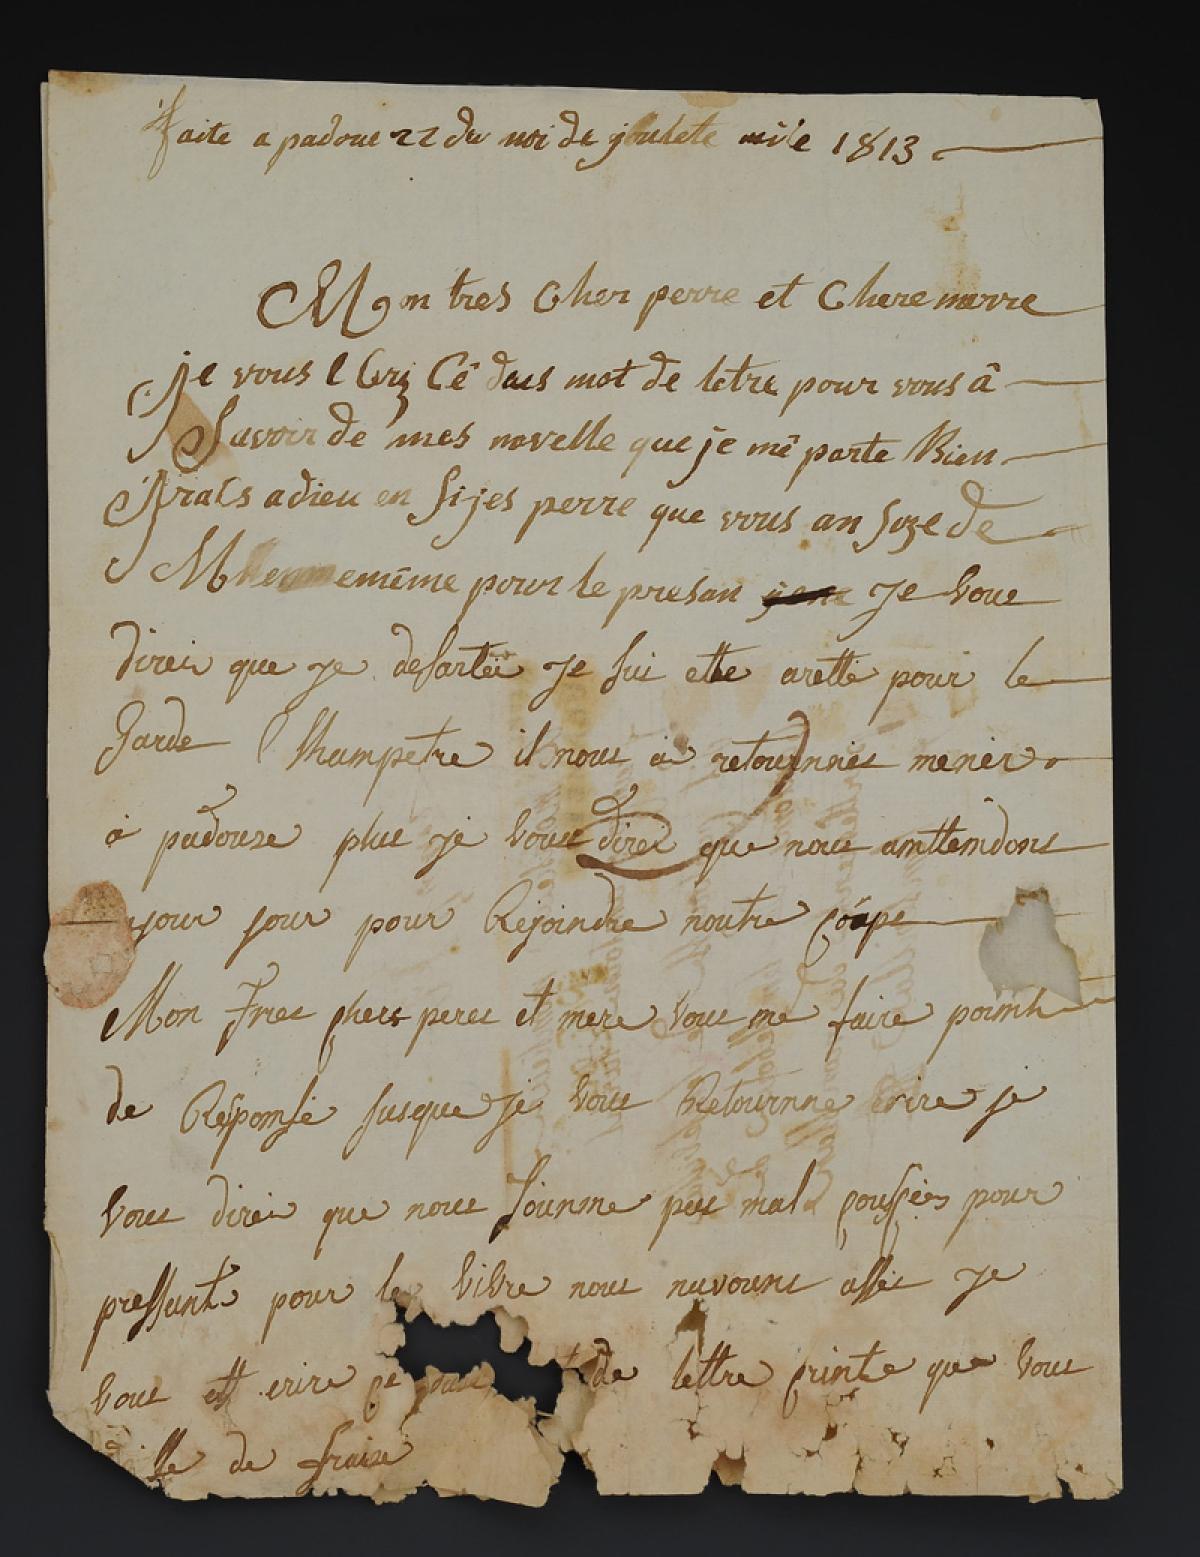 faite a padoue 22 du moi de jouliete mile 1813
Mon tres Cher perre et Chere merre
je vous E Cri Cé deus mot de letre pour vous â
Savoir de mes novelle que je mê porte Bien
Grais a dieu en Sijes perre que vous an Soze de
Mhememême pour le presan Je vous
direi que je desartée Je sui ette arette pour le
Garde Champetre il nous à retournnés menér
à padouze plus je vous direi que nous amttemdons
jour jour pour Rejoindre noutre Córps
Mon Tres chers peres et mere vous me faire poimt
de Réponse jusque Je vous Retournne ecrire je
vous direi que nous Sounme pas mal poussées pour
pressante pour le vivre nous navouns assés Je
vous ett crire ce de lettre crinte que vous
de fraize